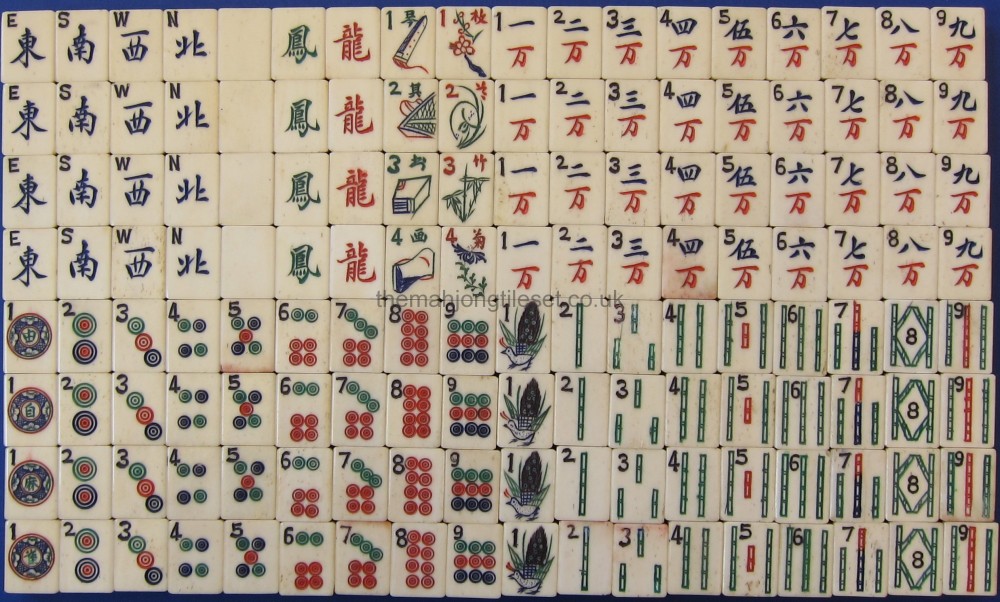 E 東 S 南 W 西 N 北 鳳 龍 1 琴 1 1 一万 2 二万 3 三万 4 四万 5 伍万 6 六万 7 七万 8 八万 9 九万
E 東 S 南 W 西 N 北 鳳 龍 2 其 2 1 一万 2 二万 3 三万 4 四万 5 伍万 6 六万 7 七万 8 八万 9 九万
E 東 S 南 W 西 N 北 鳳 龍 3 3 竹 1 一万 2 二万 3 三万 4 四万 5 伍万 6 六万 7 七万 8 八万 9 九万
E 東 S 南 W 西 N 北 鳳 龍 4 画 4 菊 1 一万 2 二万 3 三万 4 四万 5 伍万 6 六万 7 七万 8 八万 9 九万
themahjongtileset.co.uk
1 由 2 3 4 5 6 7 8 9 1 2 3 4 5 6 7 8 9
1 自 2 3 4 5 6 7 8 9 1 2 3 4 5 6 7 8 9
1 麻 2 3 4 5 6 7 8 9 1 2 3 4 5 6 7 8 9
1 2 3 4 5 6 7 8 9 1 2 3 4 5 6 7 8 9